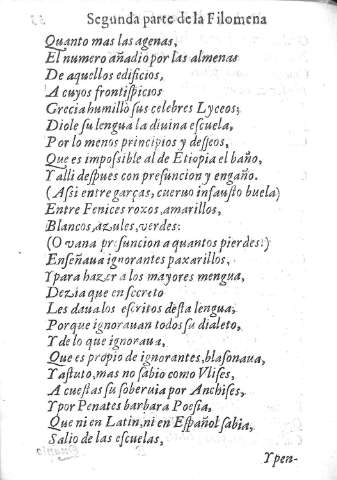 Segunda parte de la Filomena
Quanto mas las agenas,
El numero añadio por las almenas
De aquellos edificios,
A cuyos frontispicios
Grecia humillò sus celebres Lyceos;
Diole su lengua la diuina escuela,
Por lo menos principios y desseos,
Que es impossible al de Etiopia el baño,
Y alli despues con presuncion y engaño.
(Assi entre garças, cueruo infausto buela)
Entre Fenices roxos, amarillos,
Blancos, azules, verdes:
(O vana presuncion a quantos pierdes!)
Enseñaua ignorantes paxarillos,
Y para hazer a los mayores mengua,
Dezia que en secreto
Les daua los escritos desta lengua;
Porque ignorauan todos su dialeto,
Y de lo que ignoraua,
Que es propio de ignorantes, blasonaua,
Y astuto, mas no sabio como Vlises,
A cuestas su soberuia por Anchises,
Y por Penates barbara Poesia,
Que ni en Latin, ni en Español sabia,
Salio de las escuelas,
Y pen-